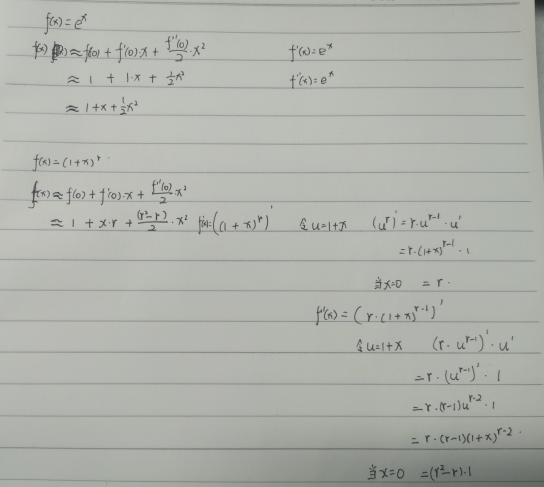 f(x)=e^x
f(x) ≈ f(0) + f'(0)·x + f''(0)/2·x²    f'(x)=e^x
≈ 1 + 1·x + ½x²    f''(x)=e^x
≈ 1+x+½x²
f(x)=(1+x)^r
f(x)≈f(0)+f'(0)·x+f''(0)/2·x²
≈ 1 + x·r + (r²-r)/2·x²  f'(x)=((1+x)^r)'  令u=1+x  (u^r)'=r·u^(r-1)·u'
=r·(1+x)^(r-1)·1
当x=0 = r·
f''(x)=(r·(1+x)^(r-1))'
令u=1+x  (r·u^(r-1))'·u'
=r·(u^(r-1))'·1
=r·(r-1)u^(r-2)·1
=r·(r-1)(1+x)^(r-2)·
当x=0 =(r²-r)·1